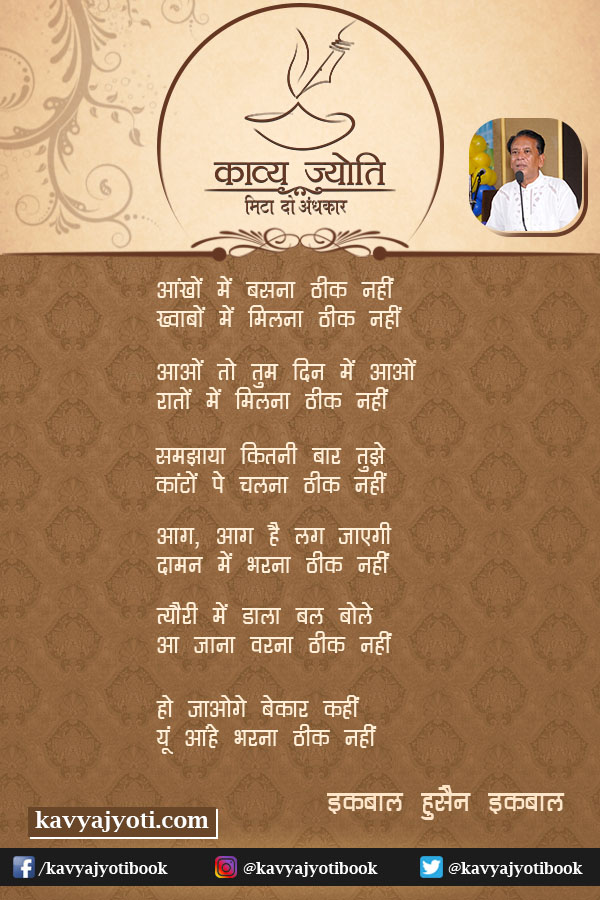 काव्य ज्योति
मिटा दो अंधकार
आंखों में बसना ठीक नहीं
ख्वाबों में मिलना ठीक नहीं
आओं तो तुम दिन में आओं
रातों में मिलना ठीक नहीं
समझाया कितनी बार तुझे
कांटों पे चलना ठीक नहीं
आग, आग है लग जाएगी
दामन में भरना ठीक नहीं
त्यौरी में डाला बल बोले
आ जाना वरना ठीक नहीं
हो जाओगे बेकार कहीं
यूं आंहे भरना ठीक नहीं
इकबाल हुसैन इकबाल
kavyajyoti.com
/kavyajyotibook @kavyajyotibook @kavyajyotibook